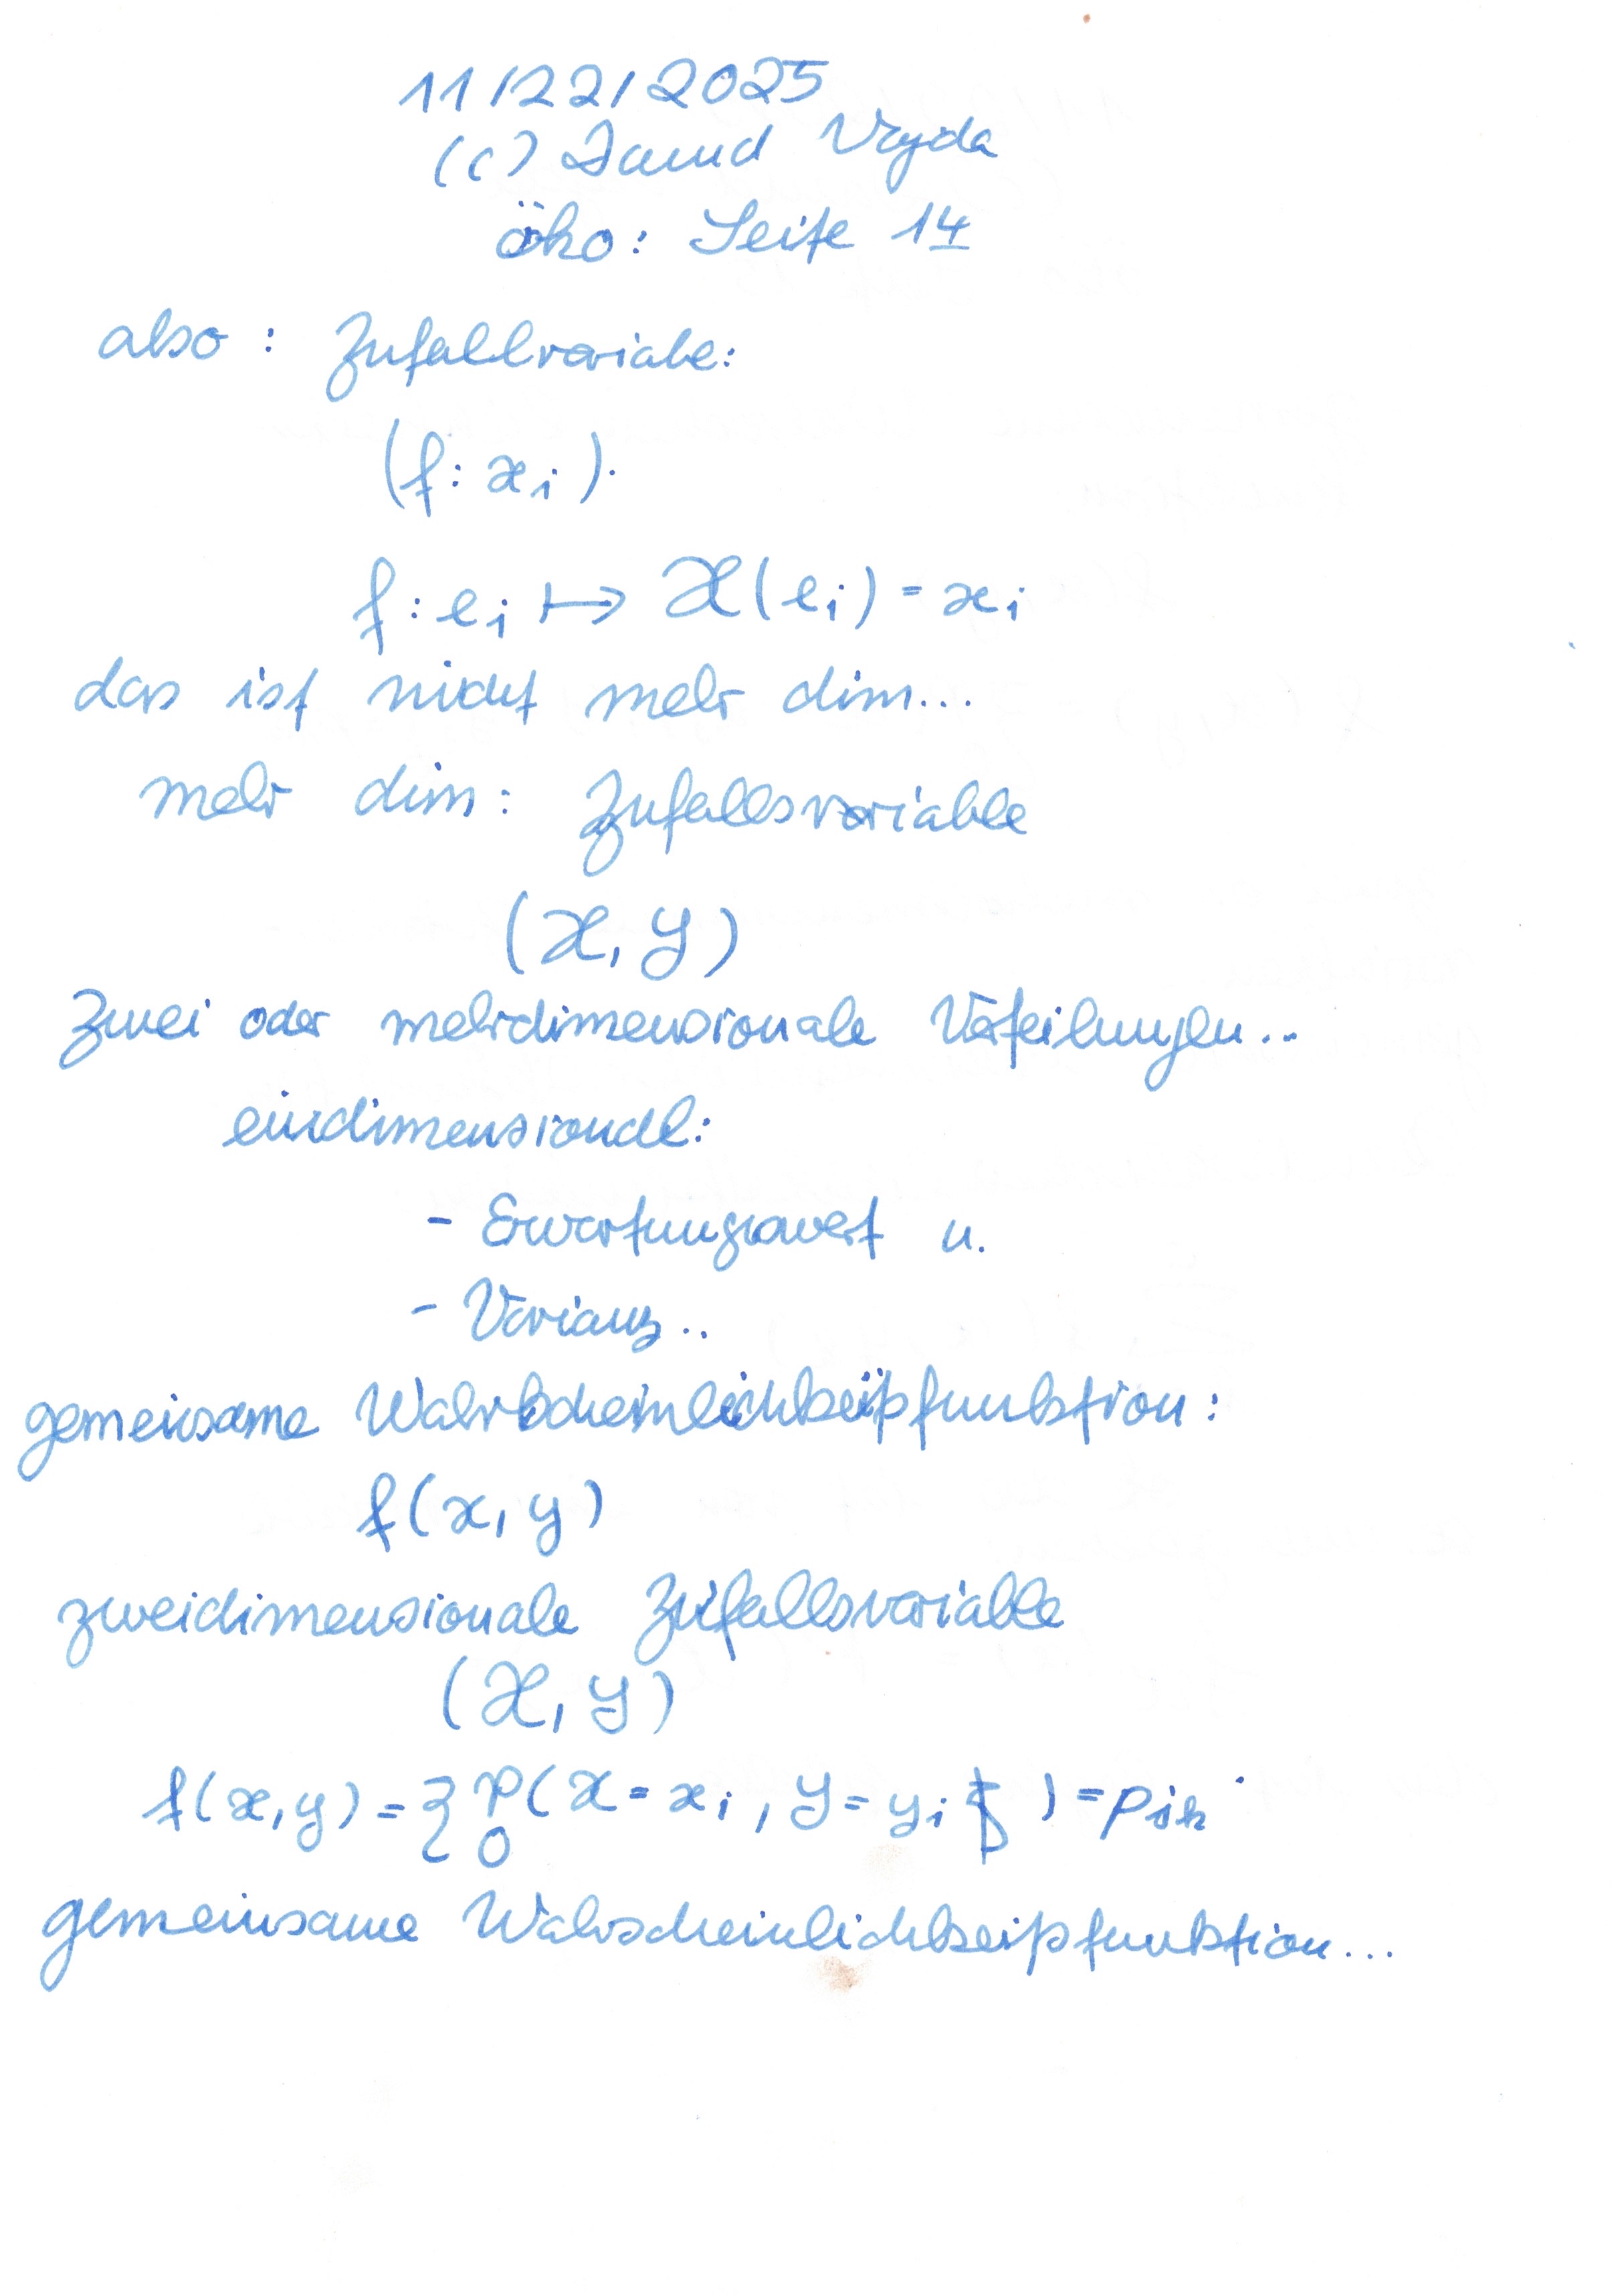 11/22/2025
(c) David Vajda
öko: Seite 14
also: Zufallvariable:
(f: xi).
f: ei ↦ X(ei) = xi
das ist nicht mehr dim...
mehr dim: Zufallsvariable
(X, Y)
Zwei oder mehrdimensionale Verteilungen...
eindimensional:
- Erwartungswert u.
- Varianz..
gemeinsame Wahrscheinlichkeitsfunktion:
f(x, y)
zweidimensionale Zufallsvariable
(X, Y)
f(x, y) = { P(X = xi, Y = yi) = pik
0
gemeinsame Wahrscheinlichkeitsfunktion...